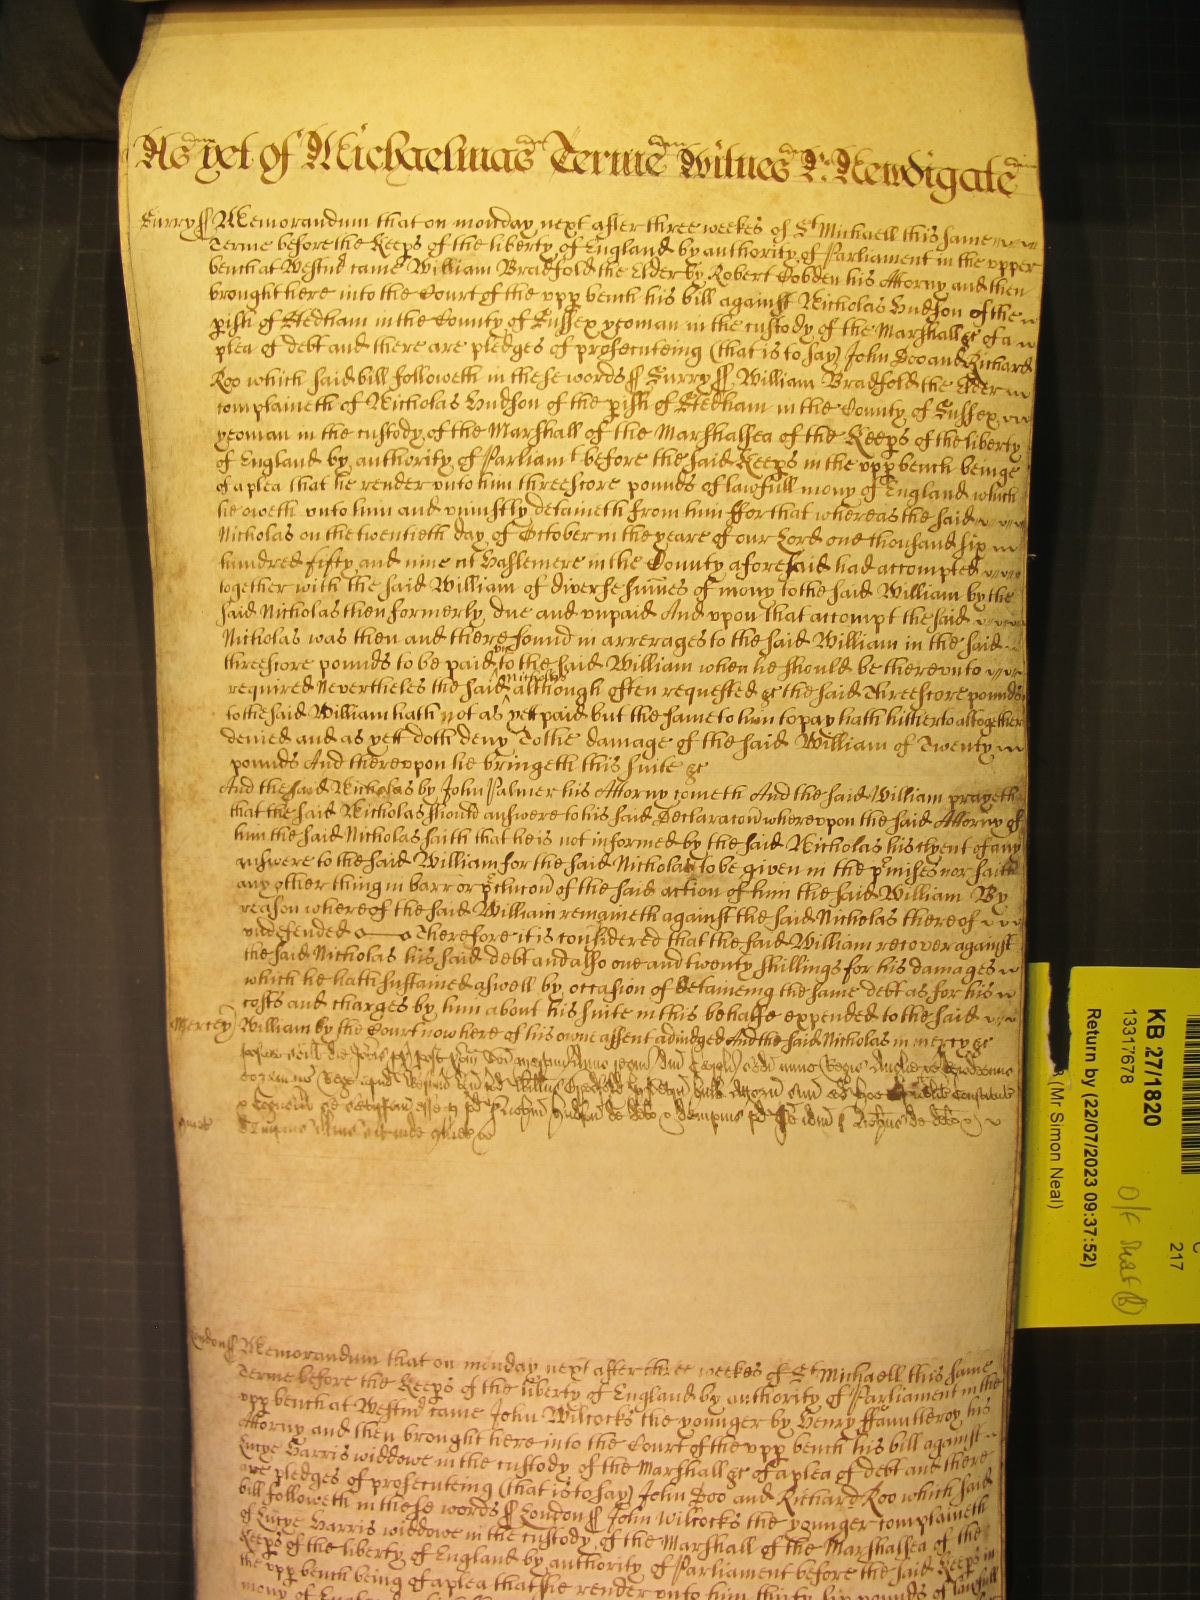 As yet of Michaelmas Terme Witnes R. Newdigate
Surry ss Memorandum that on monday next after three weekes of St Michaell this same
Terme before the Keeps of the liberty of England by authority of Parliament in the upper
bench at Westmr came William Bradfold the Elder by Robert Cobden his Attorny and then
brought here into the Court of the upp bench his bill against Nicholas Hudson of the
pish of Hedham in the County of Sussex yeoman in the custody of the Marshall &c of a
plea of debt and there are pledges of prosecuteing (that is to say) John Doo and Richard
Roo which said bill followeth in these words ss Surry ss William Bradfold the Elder
complaineth of Nicholas Hudson of the pish of Hedham in the County of Sussex
yeoman in the custody of the Marshall of the Marshalsea of the Keeps of the liberty
of England by authority of Parliamt before the said Keeps in the upp bench beinge
of a plea that he render unto him threescore pounds of lawfull mony of England which
he oweth unto him and uniustly detaineth from him ffor that whereas the said
Nicholas on the twentieth day of October in the yeare of our Lord one thousand six
hundred fifty and nine at Haslemere in the County aforesaid had accompted
together with the said William of diverse sumes of mony to the said William by the
said Nicholas then formerly due and unpaid And upon that accompt the said
Nicholas was then and there found in arrerages to the said William in the said
threescore pounds to be paid to the said William when he should be thereunto
required Nevertheles the said Nicholas although often requested &c the said Threescore pounds
to the said William hath not as yett paid but the same to him to pay hath hitherto altogether
denied and as yett doth deny To the damage of the said William of Twenty
pounds And thereupon he bringeth this suite &c
And the said Nicholas by John Palmer his Attorny cometh And the said William prayeth
that the said Nicholas should answere to his said Declaracon whereupon the said Attorny of
him the said Nicholas saith that he is not informed by the said Nicholas his clyent of any
answere to the said William for the said Nicholas to be given in the pmises nor saith
any other thing in barr or pclucon of the said action of him the said William By
reason whereof the said William remaineth against the said Nicholas thereof
undefended Therefore it is considered that the said William recover against
the said Nicholas his said debt and also one and twenty shillings for his damages
which he hath sustained aswell by occasion of detaineing the same debt as for his
costs and charges by him about his suite in this behalfe expended to the said
Mercey William by the Court now here of his owne assent adiudged And the said Nicholas in mercy &c
London ss Memorandum that on munday next after three weekes of St Michaell this same
Terme before the Keeps of the liberty of England by authority of Parliament in the
upp bench at Westmr came John Wilcocks the younger by Henry ffauntleroy his
Attorny and then brought here into the Court of the upp bench his bill against
Lucye Harris widdowe in the custody of the Marshall &c of a plea of debt and there
are pledges of prosecuteing (that is to say) John Doo and Richard Roo which said
bill followeth in these words ss London ss John Wilcocks the younger complaineth
of Lucye Harris widdowe in the custody of the Marshall of the Marshalsea of the
Keeps of the liberty of England by authority of Parliament before the said Keeps in
the upp bench being of a plea that she render unto him thirty six pounds of lawfull
mony of England
KB 27/1820
13317678
Return by (22/07/2023 09:37:52)
(Mr Simon Neal)
217